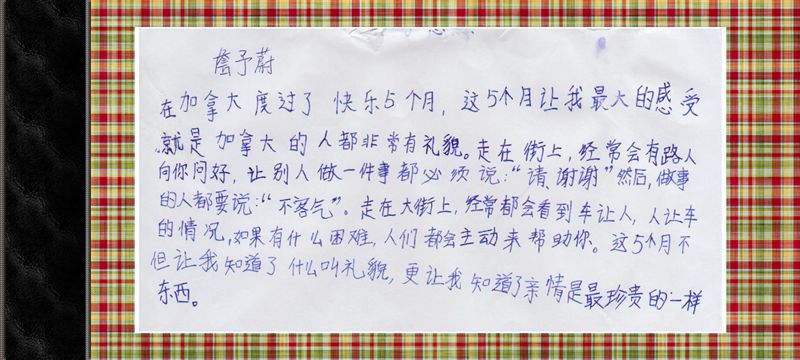 詹予蔚
在加拿大度过了快乐5个月，这5个月让我最大的感受
就是加拿大的人都非常有礼貌。走在街上，经常会有路人
向你问好，让别人做一件事都必须说：“请，谢谢”然后，做事
的人都要说：“不客气”。走在大街上，经常都会看到车让人，人让车
的情况，如果有什么困难，人们都会主动来帮助你。这5个月不
但让我知道了什么叫礼貌，更让我知道了亲情是最珍贵的一样
东西。